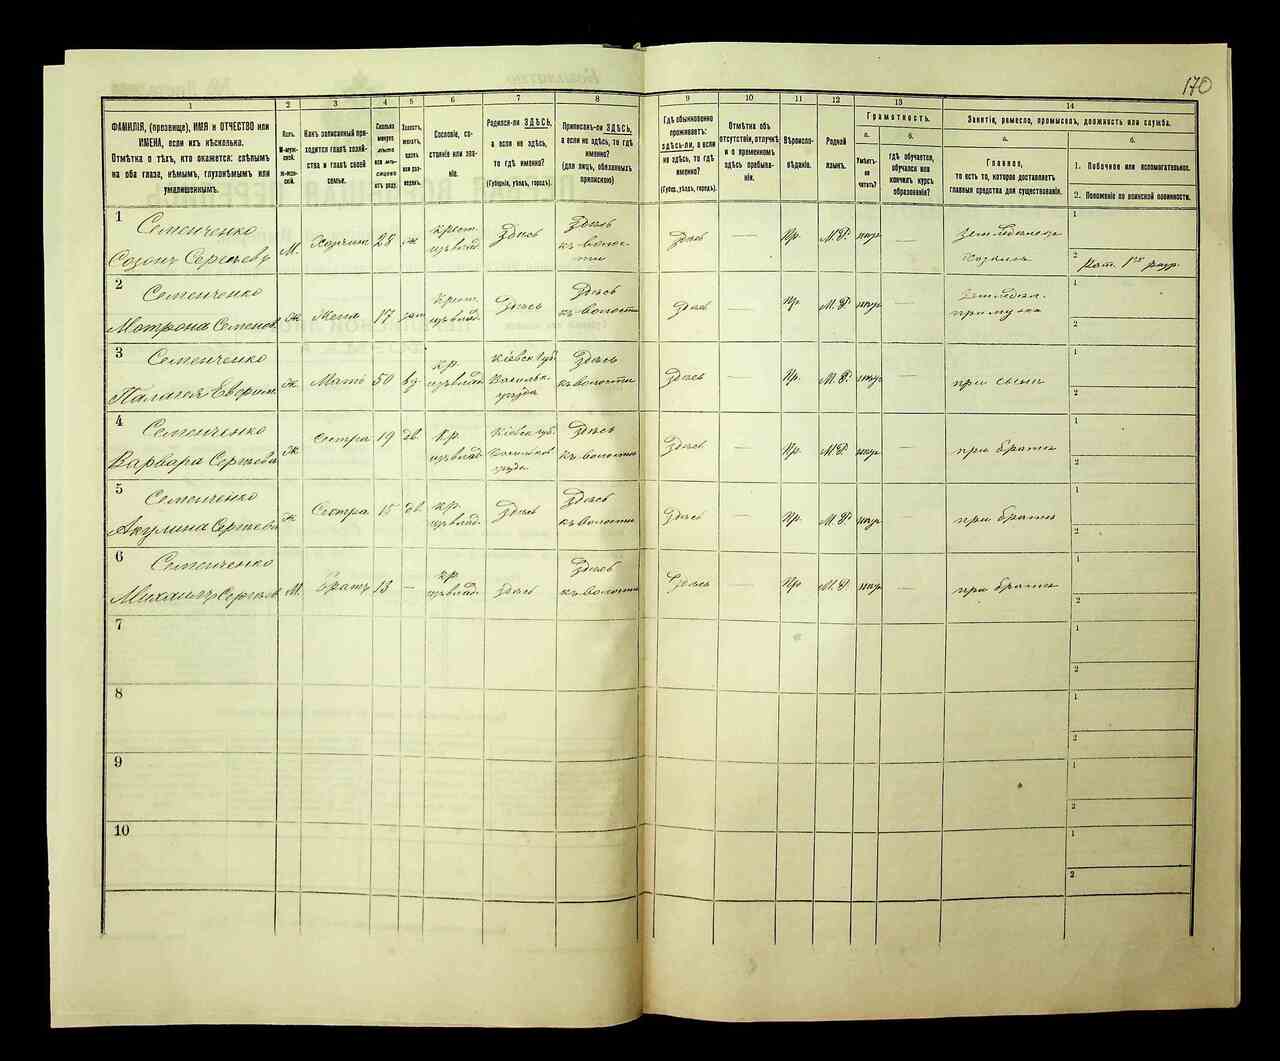 170
1
2
3
4
5
6
7
8
9
10
11
12
13
14
ФАМИЛІЯ, (прозвище), ИМЯ и ОТЧЕСТВО или
ИМЕНА, если ихъ нѣсколько.
Отмѣтка о тѣхъ, кто окажется: слѣпымъ
на оба глаза, нѣмымъ, глухонѣмымъ или
умалишеннымъ.
Полъ.
М-муж-
ской.
Ж-жен-
скій.
Какъ записанный при-
ходится главѣ хозяй-
ства и главѣ своей
семьи.
Сколько
минуло
лѣтъ
или мѣ-
сяцевъ
отъ роду.
Холостъ,
женатъ,
вдовъ
или раз-
веденъ.
Сословіе, со-
стояніе или зва-
ніе.
Родился-ли ЗДѢСЬ,
а если не здѣсь,
то гдѣ именно?
(Губернія, уѣздъ, городъ).
Приписанъ-ли ЗДѢСЬ,
а если не здѣсь, то гдѣ
именно?
(для лицъ, обязанныхъ
припискою)
Гдѣ обыкновенно
проживаетъ:
здѣсь-ли, а если
не здѣсь, то гдѣ
именно?
(Губ., уѣздъ, городъ).
Отмѣтка объ
отсутствіи, отлучкѣ
и о временномъ
здѣсь пребыва-
ніи.
Вѣроиспо-
вѣданіе.
Родной
языкъ.
Грамотность.
а.
б.
Умѣетъ-
ли
читать?
гдѣ обучается,
обучался или
кончилъ курсъ
образованія?
Занятіе, ремесло, промыселъ, должность или служба.
а.
б.
Главное,
то есть то, которое доставляетъ
главныя средства для существованія.
1. Побочное или вспомогательное.
2. Положеніе по воинской повинности.
1
Семенченко
Созонъ Сергѣевъ
М.
Хозяин
28
ж
крест.
изъ влад.
Здѣсь
Здѣсь
къ волос-
ти
Здѣсь
—
Пр.
М.Р.
—
Земледѣлецъ
хозяинъ
1
2
1го разр.
2
Семенченко
Матрона Семенов
ж
Жена
17
зам
Крест.
изъ влад.
Здѣсь
Здѣсь
къ волости
Здѣсь
—
Пр
М.Р.
—
при мужѣ
1
2
3
Семенченко
Палагея Евфрим.
ж
Мать
50
вд
кр.
изъ влад.
Кіевск губ.
Васильк.
уѣзда
Здѣсь
къ волости
Здѣсь
—
Пр.
М.Р.
—
при сынѣ
1
2
4
Семенченко
Варвара Сергѣева
ж
Сестра
19
дв.
Кр.
изъ влад.
Кіевск губ.
Васильков
уѣзда
Здѣсь
къ волости
Здѣсь
—
Пр.
М.Р.
—
при братѣ
1
2
5
Семенченко
Акулина Сергѣева
ж
Сестра
15
дв.
кр.
изъ влад.
Здѣсь
Здѣсь
къ волости
Здѣсь
—
Пр.
М.Р.
—
при братѣ
1
2
6
Семенченко
Михаилъ Сергѣев
М.
братъ
13
—
кр.
изъ влад.
здѣсь
Здѣсь
къ волости
Здѣсь
—
Пр
М.Р.
—
при братѣ
1
2
7
1
2
8
1
2
9
1
2
10
1
2